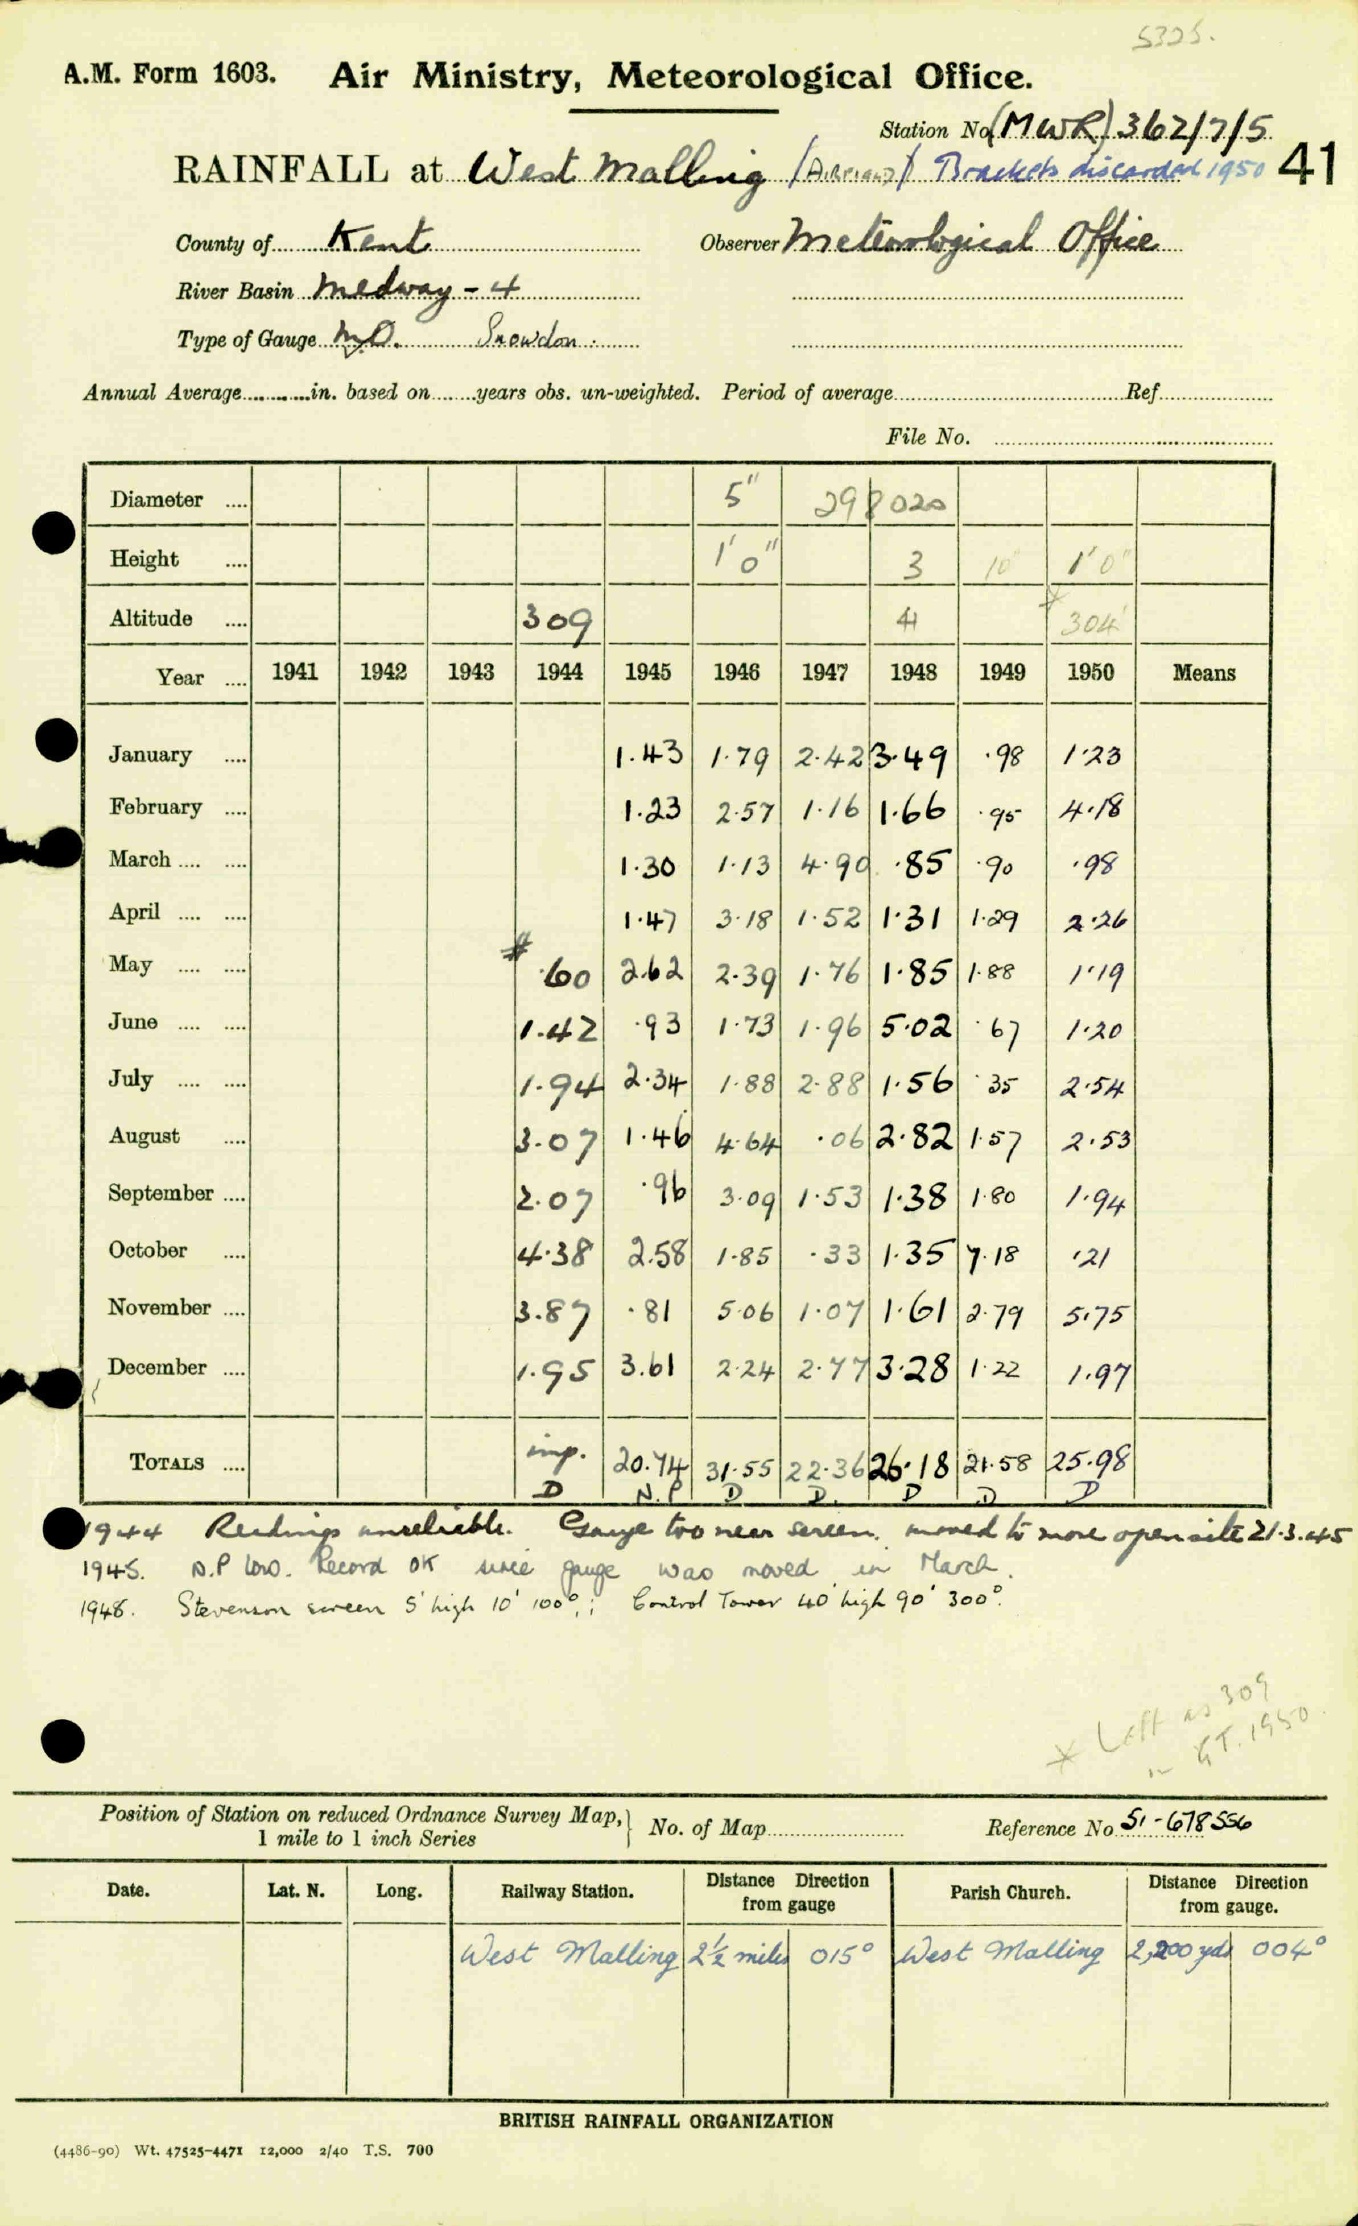 5325.
A.M. Form 1603. Air Ministry, Meteorological Office.
Station No. (MWR) 362/7/5
RAINFALL at West Malling (Airfield) Brackets discarded 1950 41
County of Kent Observer Meteorological Office
River Basin Medway - 4
Type of Gauge M.O. Snowdon.
Annual Average............in. based on........years obs. un-weighted. Period of average Ref
File No.
Diameter .... 5" 298020
Height .... 1'0" 3 10" 1'0"
Altitude .... 309 4 * 304'
Year .... 1941 1942 1943 1944 1945 1946 1947 1948 1949 1950 Means
January .... 1.43 1.79 2.42 3.49 .98 1.23
February .... 1.23 2.57 1.16 1.66 .95 4.18
March .... .... 1.30 1.13 4.90 .85 .90 .98
April .... .... 1.47 3.18 1.52 1.31 1.29 2.26
May .... .... .60 2.62 2.39 1.76 1.85 1.88 1.19
June .... .... 1.42 .93 1.73 1.96 5.02 .67 1.20
July .... .... 1.94 2.34 1.88 2.88 1.56 .35 2.54
August .... 3.07 1.46 4.64 .06 2.82 1.57 2.53
September .... 2.07 .96 3.09 1.53 1.38 1.80 1.94
October .... 4.38 2.58 1.85 .33 1.35 7.18 .21
November .... 3.87 .81 5.06 1.07 1.61 2.79 5.75
December .... 1.95 3.61 2.24 2.77 3.28 1.22 1.97
TOTALS .... imp. 20.74 31.55 22.36 26.18 21.58 25.98
D N.P D D. D D D
1944 Readings unreliable. Gauge too near screen. moved to more open site 21.3.45
1945. N.P low. Record OK since gauge was moved in March.
1948. Stevenson screen 5' high 10' 100°; Control Tower 40' high 90' 300°.
* Left as 309
in G.T. 1950.
Position of Station on reduced Ordnance Survey Map, No. of Map Reference No 51-678556
1 mile to 1 inch Series
Date. Lat. N. Long. Railway Station. Distance Direction from gauge Parish Church. Distance Direction from gauge.
West Malling 2½ miles 015° West Malling 2,200 yds 004°
BRITISH RAINFALL ORGANIZATION
(4486-90) Wt. 47525-4471 12,000 2/40 T.S. 700